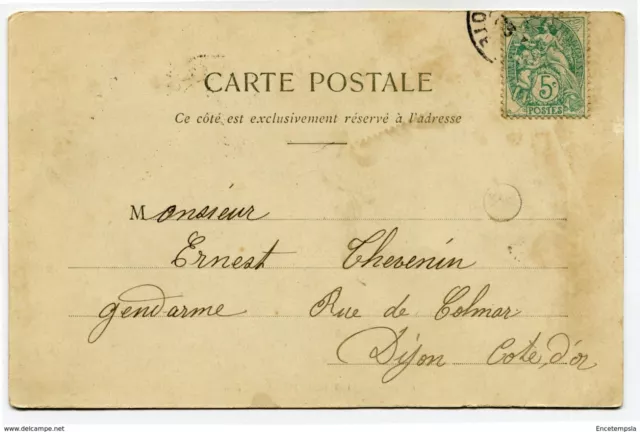 CARTE POSTALE
Ce côté est exclusivement réservé à l'adresse
5c
POSTES
Monsieur
Ernest Thevenin
gendarme Rue de Colmar
Dijon Cote d'or
www.delcampe.net
Encetempsla